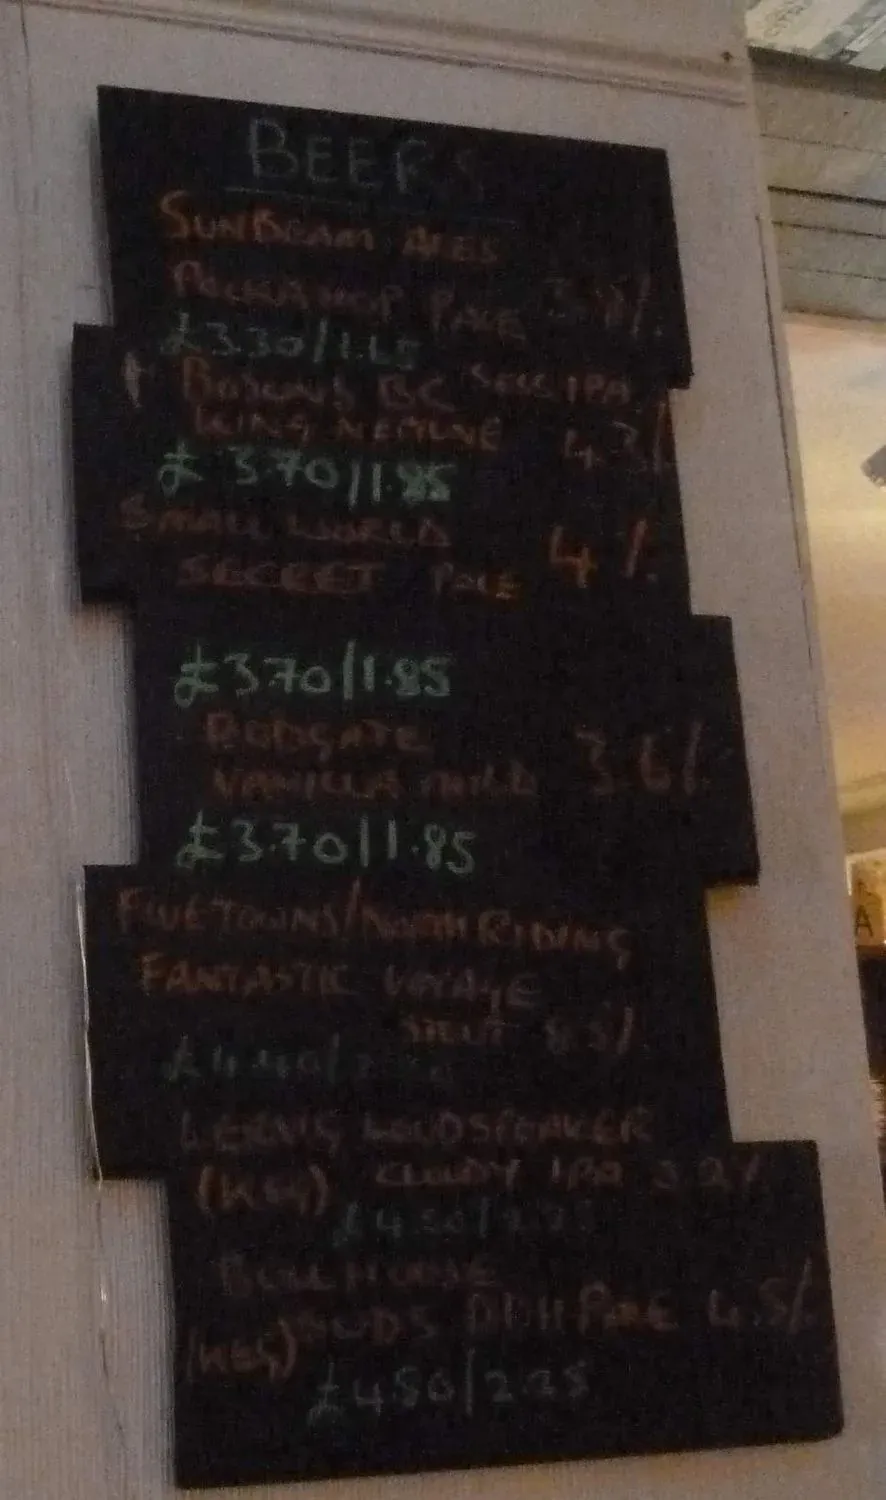 BEERS
SUNBEAM ALES
POLKA HOP PALE 3.8%
£3.30/1.65
BC SESS IPA
KING NEPTUNE 4.3%
£3.70/1.85
SMALL WORLD 4%
SECRET PALE
£3.70/1.85
BOBGATE
VANILLA MILD 3.6%
£3.70/1.85
FIVETOWNS/NORTH RIDING
FANTASTIC VOYAGE
STOUT
£4.40/2
LERVIG LOUDSPEAKER
(KEG) CLOUDY IPA
£4.50/2.25
BULLHOUSE
(KEG) SUDS DDH PALE 4.5%
£4.50/2.25